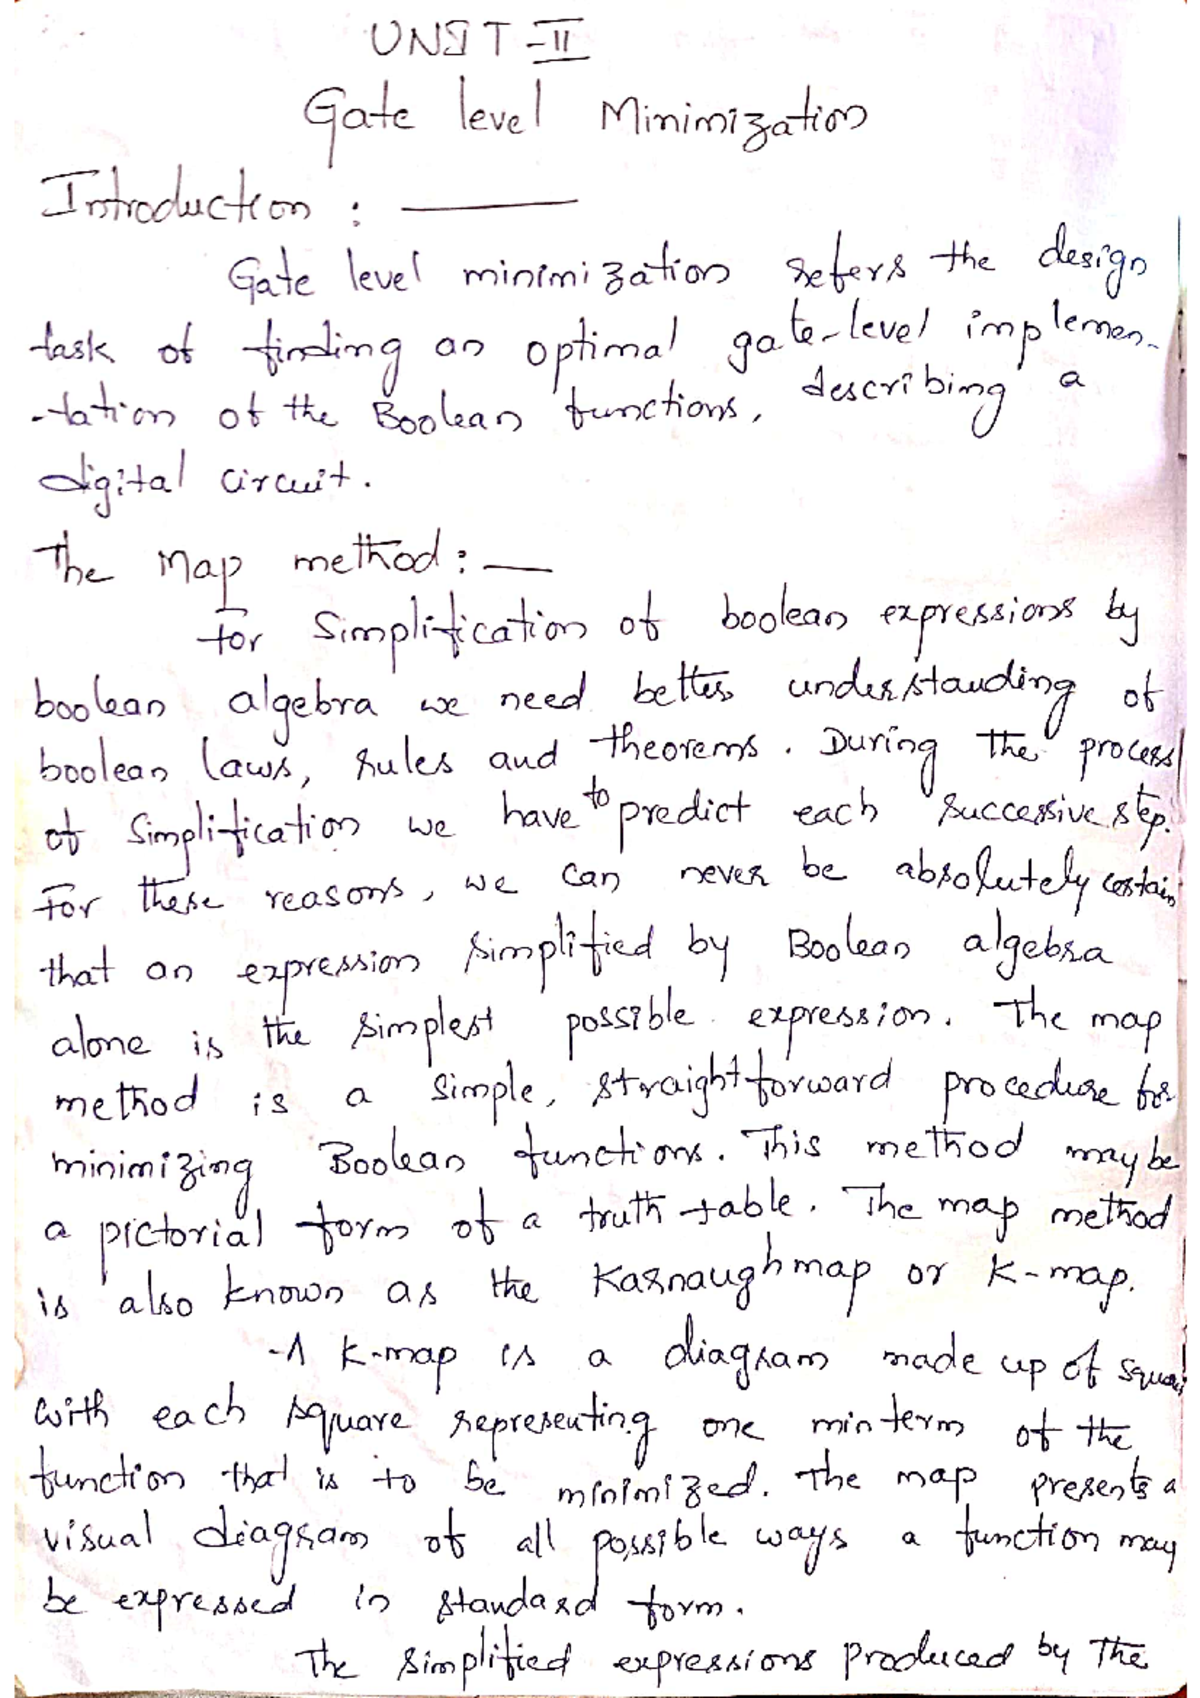 UNIT-II
Gate level Minimization
Introduction :
Gate level minimization refers the design
task of finding an optimal gate-level implemen-
-tation of the Boolean functions, describing a
digital circuit.
The Map method :
For Simplification of boolean expressions by
boolean algebra we need better understanding of
boolean laws, rules and theorems. During the process
of Simplification we have to predict each successive step.
For these reasons, we can never be absolutely certain
that an expression simplified by Boolean algebra
alone is the simplest possible expression. The map
method is a simple, straightforward procedure for
minimizing Boolean functions. This method may be
a pictorial form of a truth table. The map method
is also known as the Karnaugh map or K-map.
A K-map is a diagram made up of
with each square representing one minterm of the
function that is to be minimized. The map presents a
visual diagram of all possible ways a function may
be expressed in standard form.
The simplified expressions produced by the